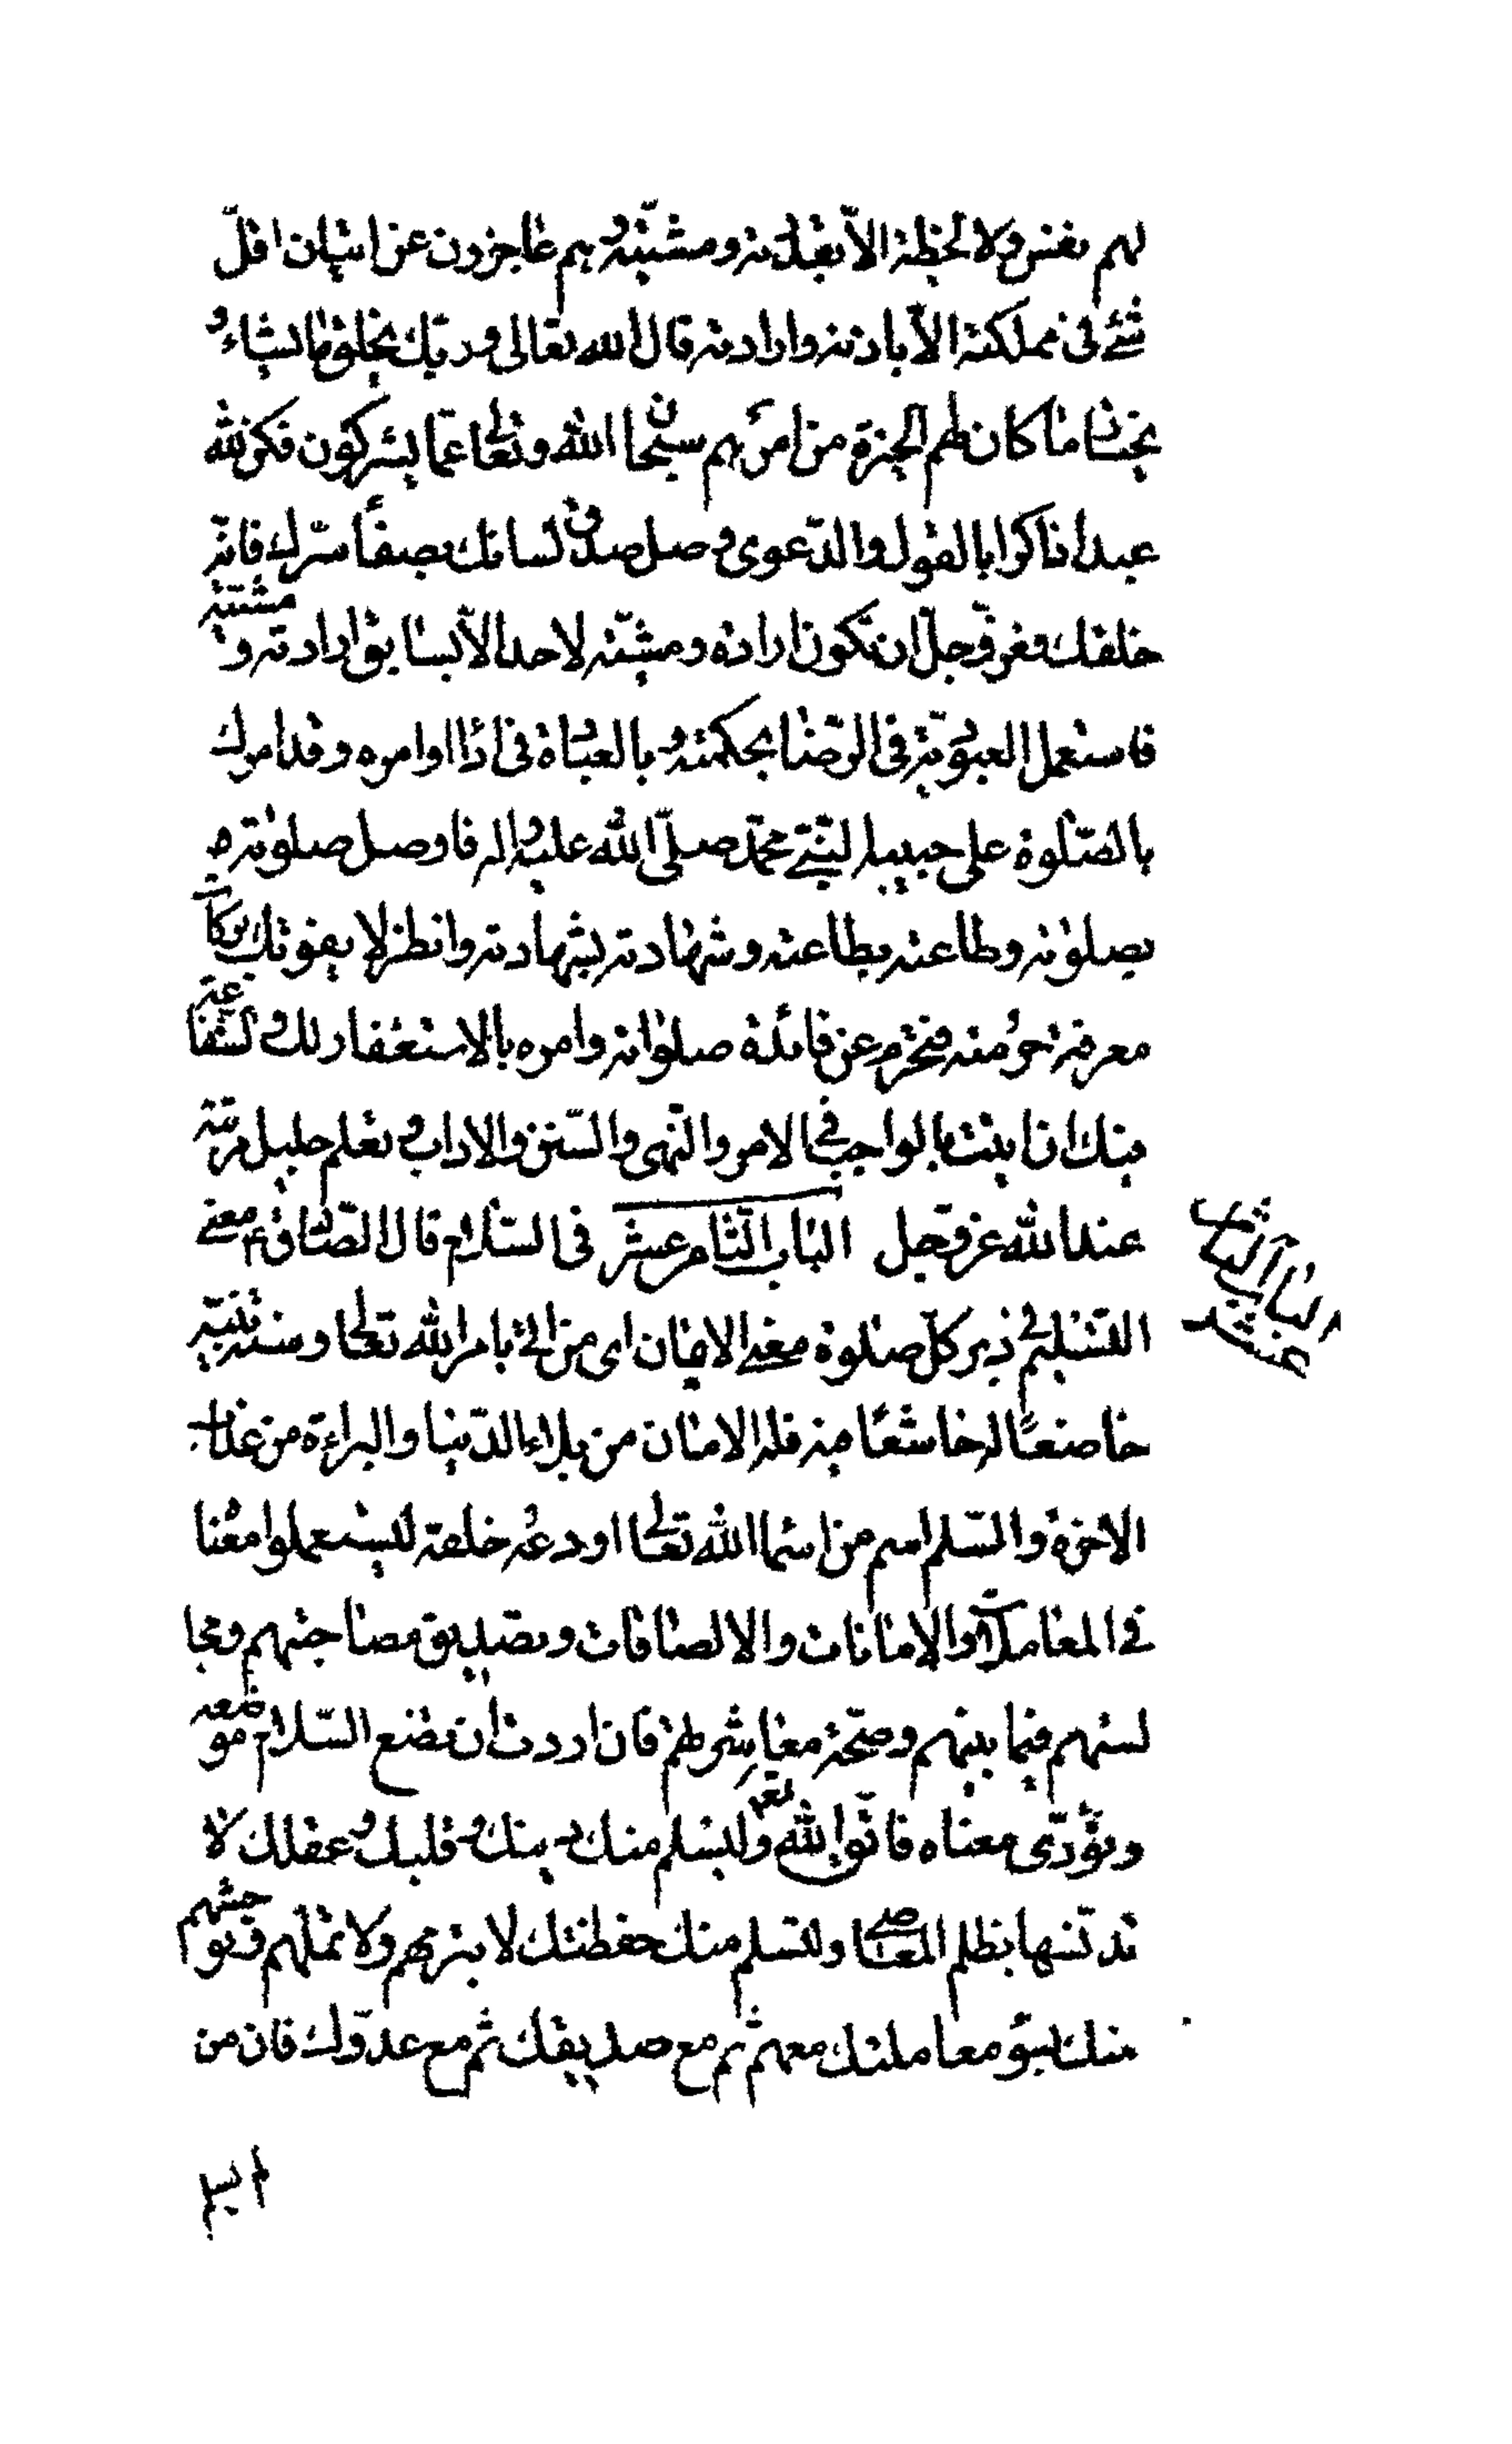 لهم نفس ولا لحظة الا بقدرته ومشيته وهم عاجزون عن اتيان اقل
شئ فى مملكته الا باذنه وارادته قال الله تعالى وربك يخلق ما يشاء و
يختار ما كان لهم الخيرة من امرهم سبحان الله وتعالى عما يشركون فكن لله
عبدا ذاكرا بالقول والدعوى وصل صدق لسانك بصفاء سرك فانه
خلقك فعز وجل ان تكون ارادة ومشية لاحد الا بسابق ارادته و مشيته
فاستعمل العبودية فى الرضا بحكمته و بالعبادة فى اداء اوامره وقد امرك
بالصلوة على حبيبه النبى محمد صلى الله عليه واله فاوصل صلوته
بصلوته وطاعته بطاعته وشهادته بشهادته وانظر لا يفوتك بركات
معرفة حرمته فتحرم عن فائدة صلواته وامره بالاستغفار لك و الشفاعة
فيك ان اتيت بالواجب فى الامر والنهى والسنن والاداب و تعلم جليل مرتبته
عند الله عز وجل الباب الثامن عشر فى السلام قال الصادق ع معنى
التسليم فى دبر كل صلوة معنى الامان اى من ادى بامر الله تعالى وسنة نبيه
خاضعا له خاشعا منه فله الامان من بلاء الدنيا والبراءة من عذاب
الاخرة والسلم اسم من اسماء الله تعالى اودعه خلقه ليستعملوا معناه
فى المعاملات والامانات والالصاقات وتصديق مصاحبتهم ومجا
لستهم فيما بينهم وصحة معاشرتهم فان اردت ان تضع السلام موضعه
وتؤدى معناه فاتق الله تعالى وليسلم منك دينك و قلبك و عقلك لا
تدنسها بظلم المعاصى ولتسلم منك حفظتك لا تبرمهم ولا تملهم وتوحشهم
منك بسوء معاملتك معهم ثم مع صديقك ثم مع عدوك فان من
الباب الثامن
عشر